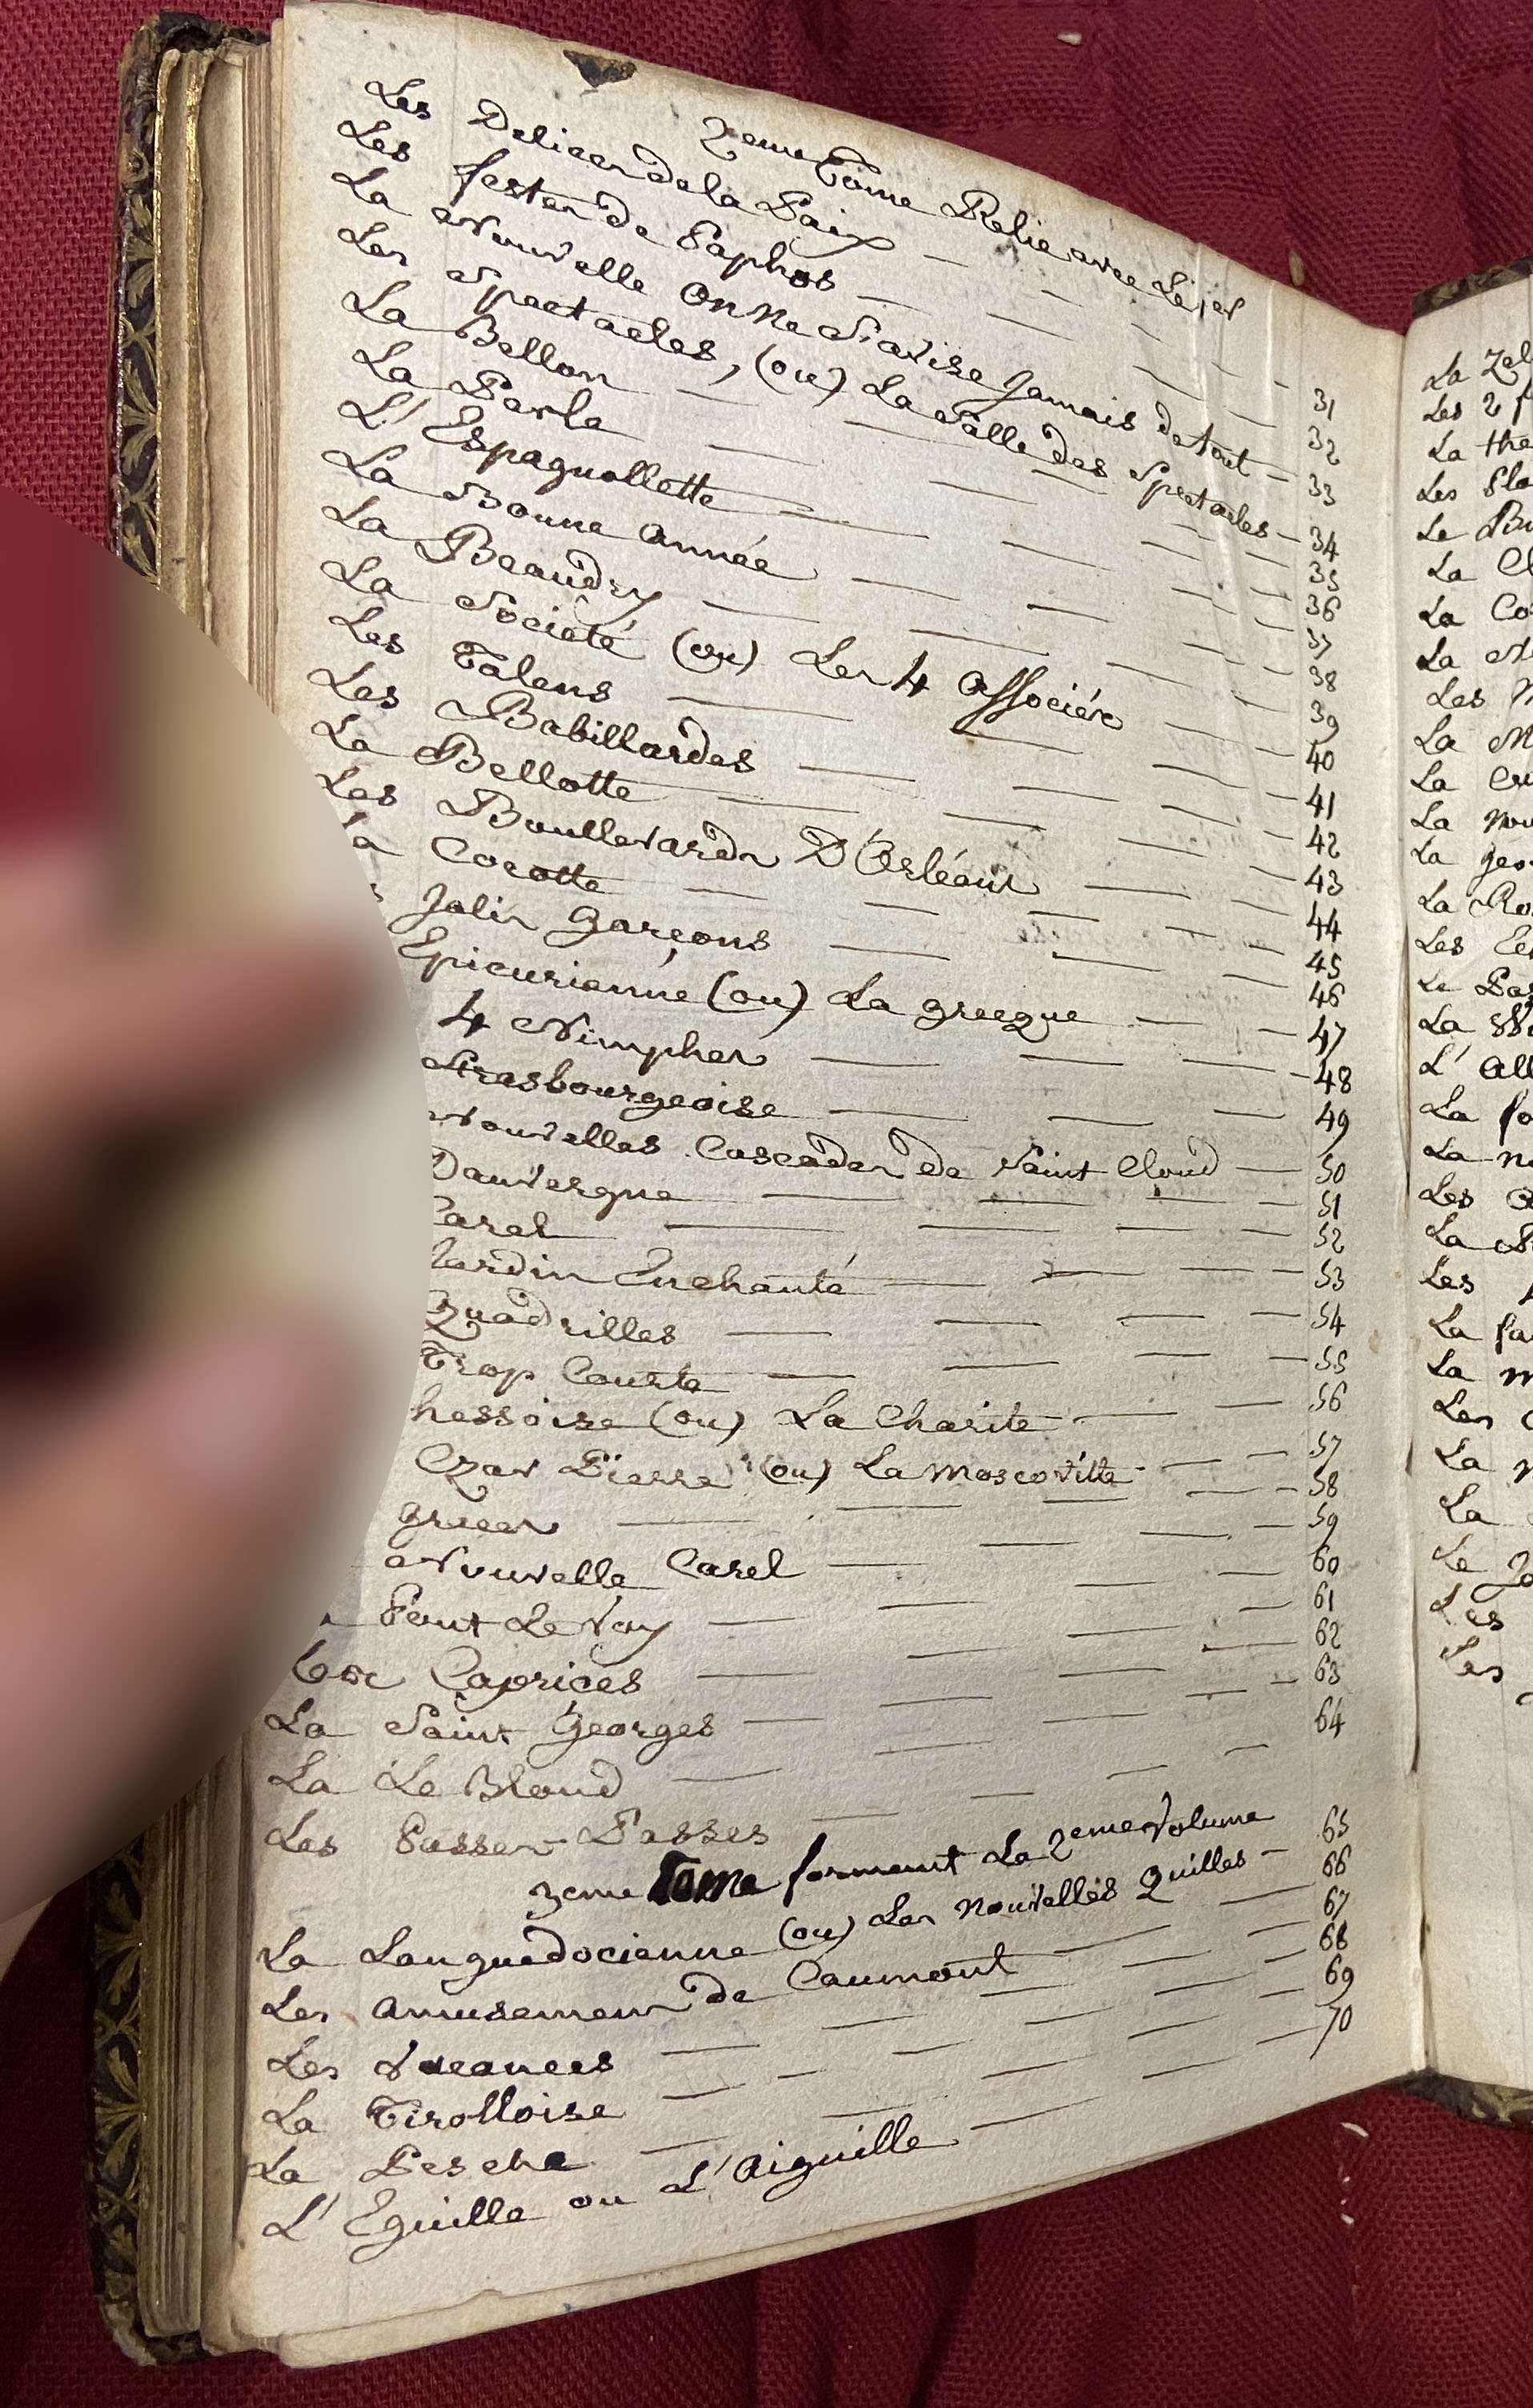 2eme Tome Relie avec Le 1er
Les Delices de la Paix 31
Les festes de Paphos 32
La Nouvelle On Ne S'avise Jamais de tout 33
Les Spectacles, (ou) La Salle des Spectacles 34
La Bellon 35
La Perle 36
L'Espagnollette 37
La Bonne Année 38
La Beaudry 39
La Societé (ou) Les 4 Associés 40
Les Talens 41
Les Babillardes 42
La Bellotte 43
Les Boullevards D'Orléans 44
a Cocotte 45
s Jolis Garçons 46
Epicurienne (ou) La grecque 47
4 Nimphes 48
Strasbourgeoise 49
Nouvelles Cascades de Saint Cloud 50
Dauvergne 51
Carel 52
Jardin Enchanté 53
Quadrilles 54
Trop Courte 55
hessoise (ou) La Charité 56
Czar Pierre (ou) La Moscovitte 57
graces 58
Nouvelle Carel 59
Pont Le Voy 60
Caprices 61
La Saint Georges 62
La Le Blond 63
Les Passes-Passes 64
3eme Tome formant Le 2eme Volume
La Languedocienne (ou) Les Nouvelles Quilles 65
Les Amusemens de Caumont 66
Les Vacances 67
La Tirolloise 68
La Pesche 69
L'Eguille ou L'Aiguille 70
La
Les 2
La
Les
Le
La
La
La
Les
La
La
La
La
La
Les
Le
La
L'
La
La
Les
La
Les
La
La
Les
La
La
Le
Les
Les